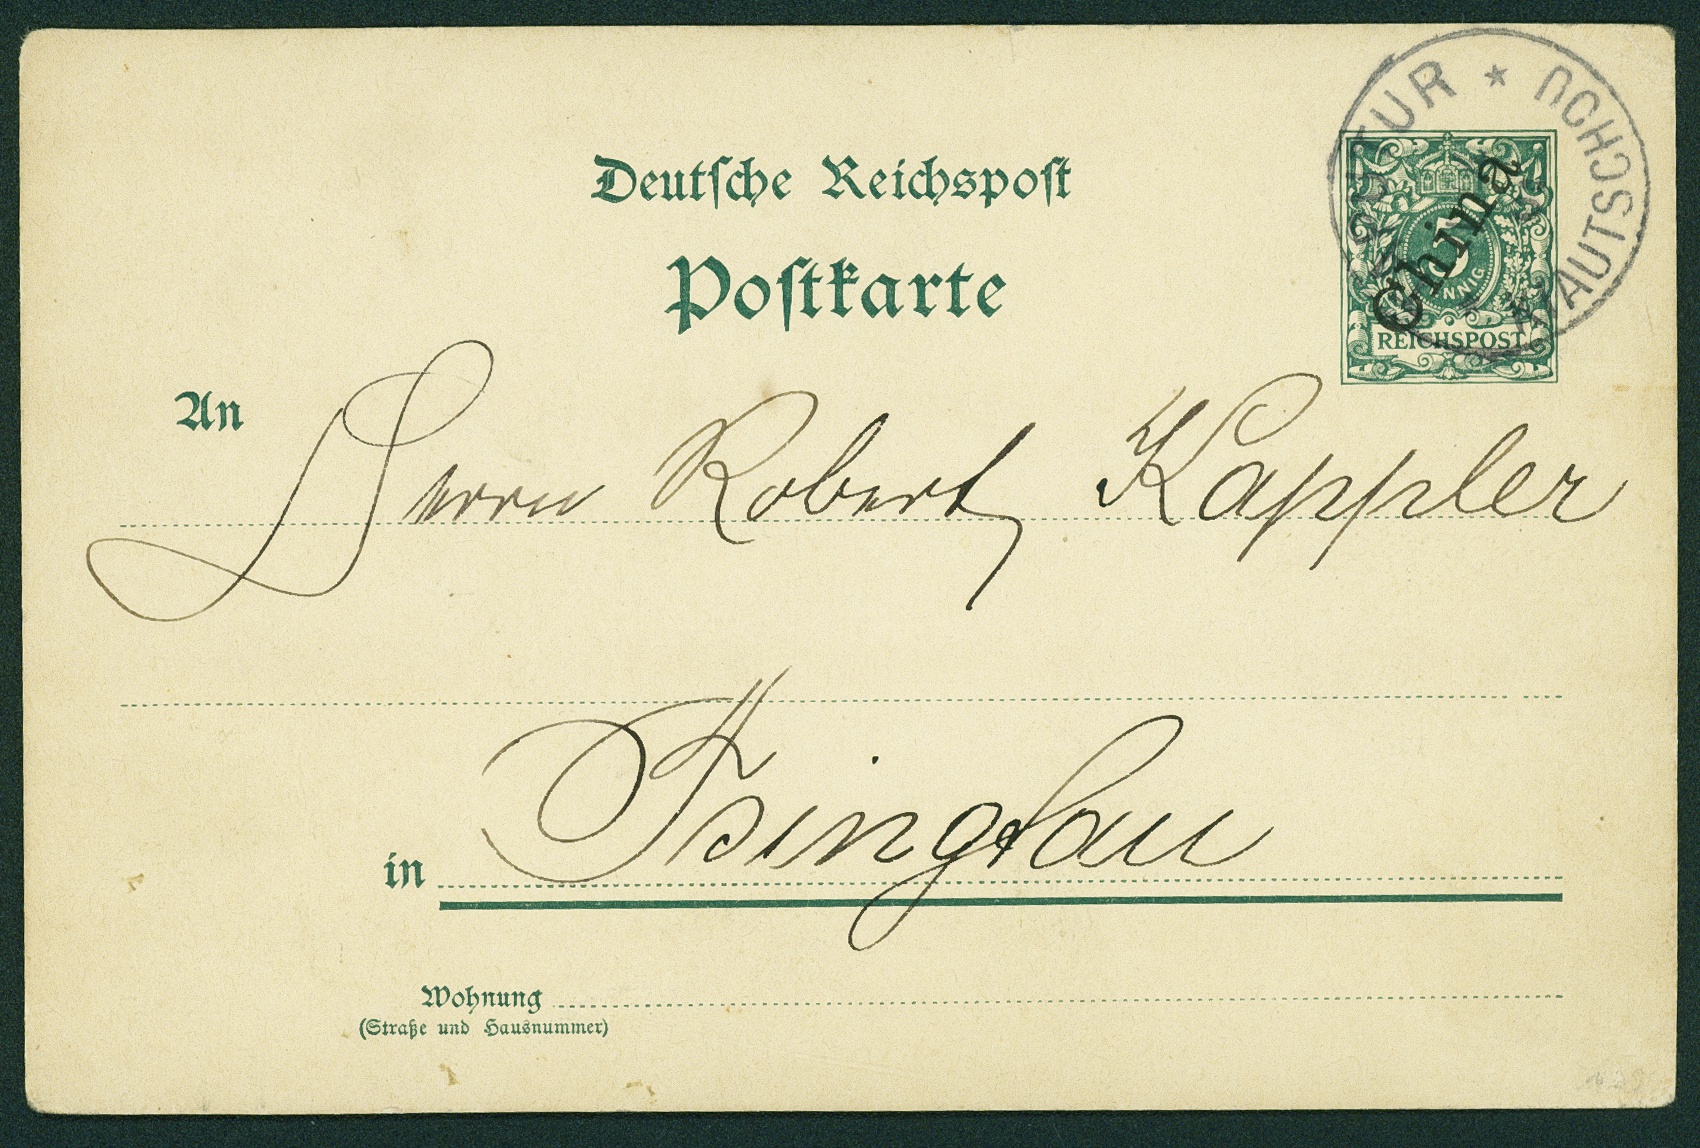 Deutsche Reichspost
Postkarte
KIAUTSCHOU *
China
5
REICHSPOST
An Herrn Robert Kappler
in Tsingtau
Wohnung
(Straße und Hausnummer)